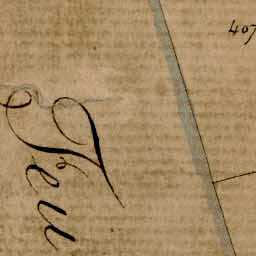 407
Feu